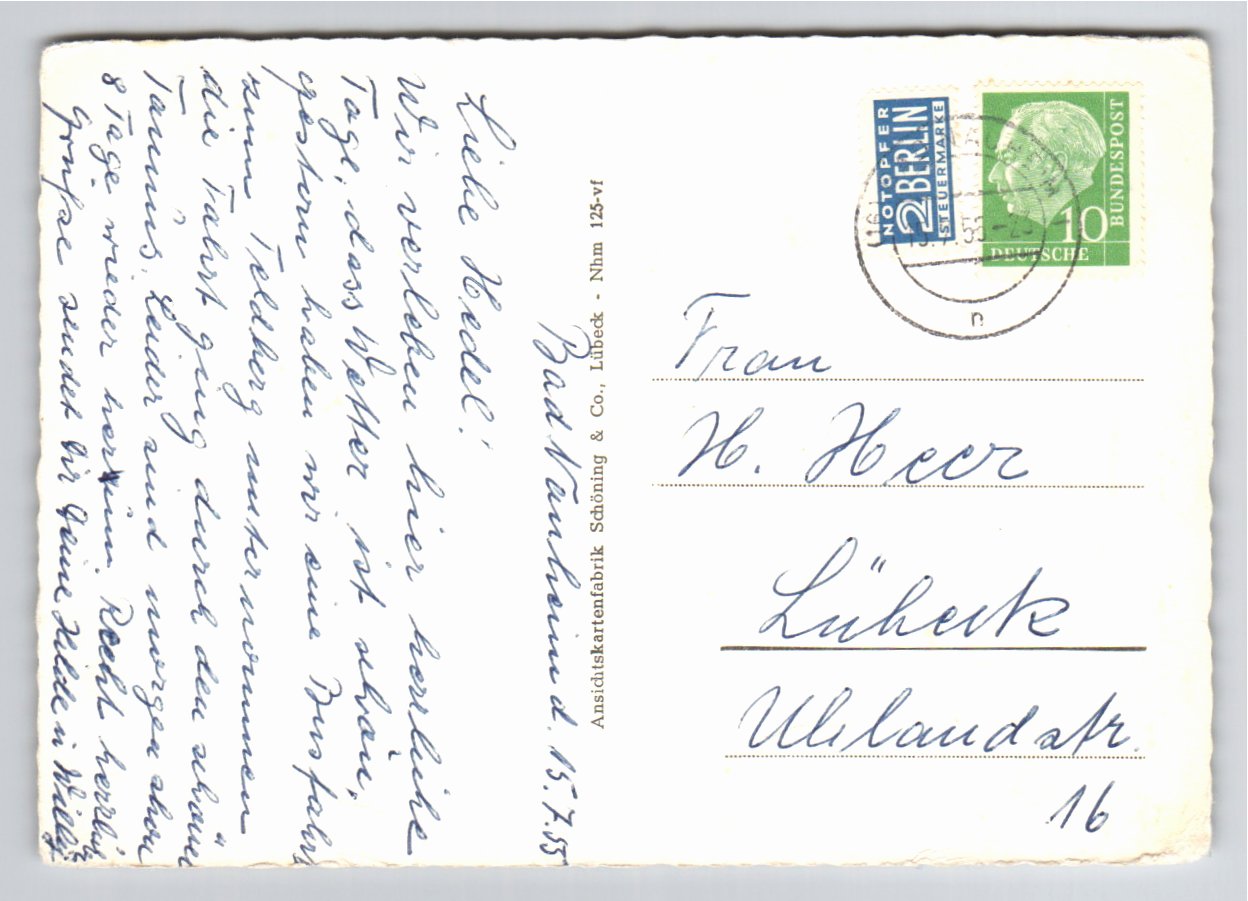 Bad Nauheim d. 15.7.55
Liebe Hedel!
Wir verleben hier herrliche
Tage, dass Wetter ist schön,
gestern haben wir eine Busfahrt
zum Feldberg unternommen
die Fahrt ging durch den schönen
Taunus. Leider sind morgen schon
8 Tage wieder herum. Recht herzl.
Grüsse sendet Dir Deine Hilde u Willy
Ansichtskartenfabrik Schöning & Co., Lübeck - Nhm 125-vf
NOTOPFER
2 BERLIN
STEUERMARKE
DEUTSCHE
BUNDESPOST
10
(16)
n
Frau
H. Heer
Lübeck
Uhlandstr.
16